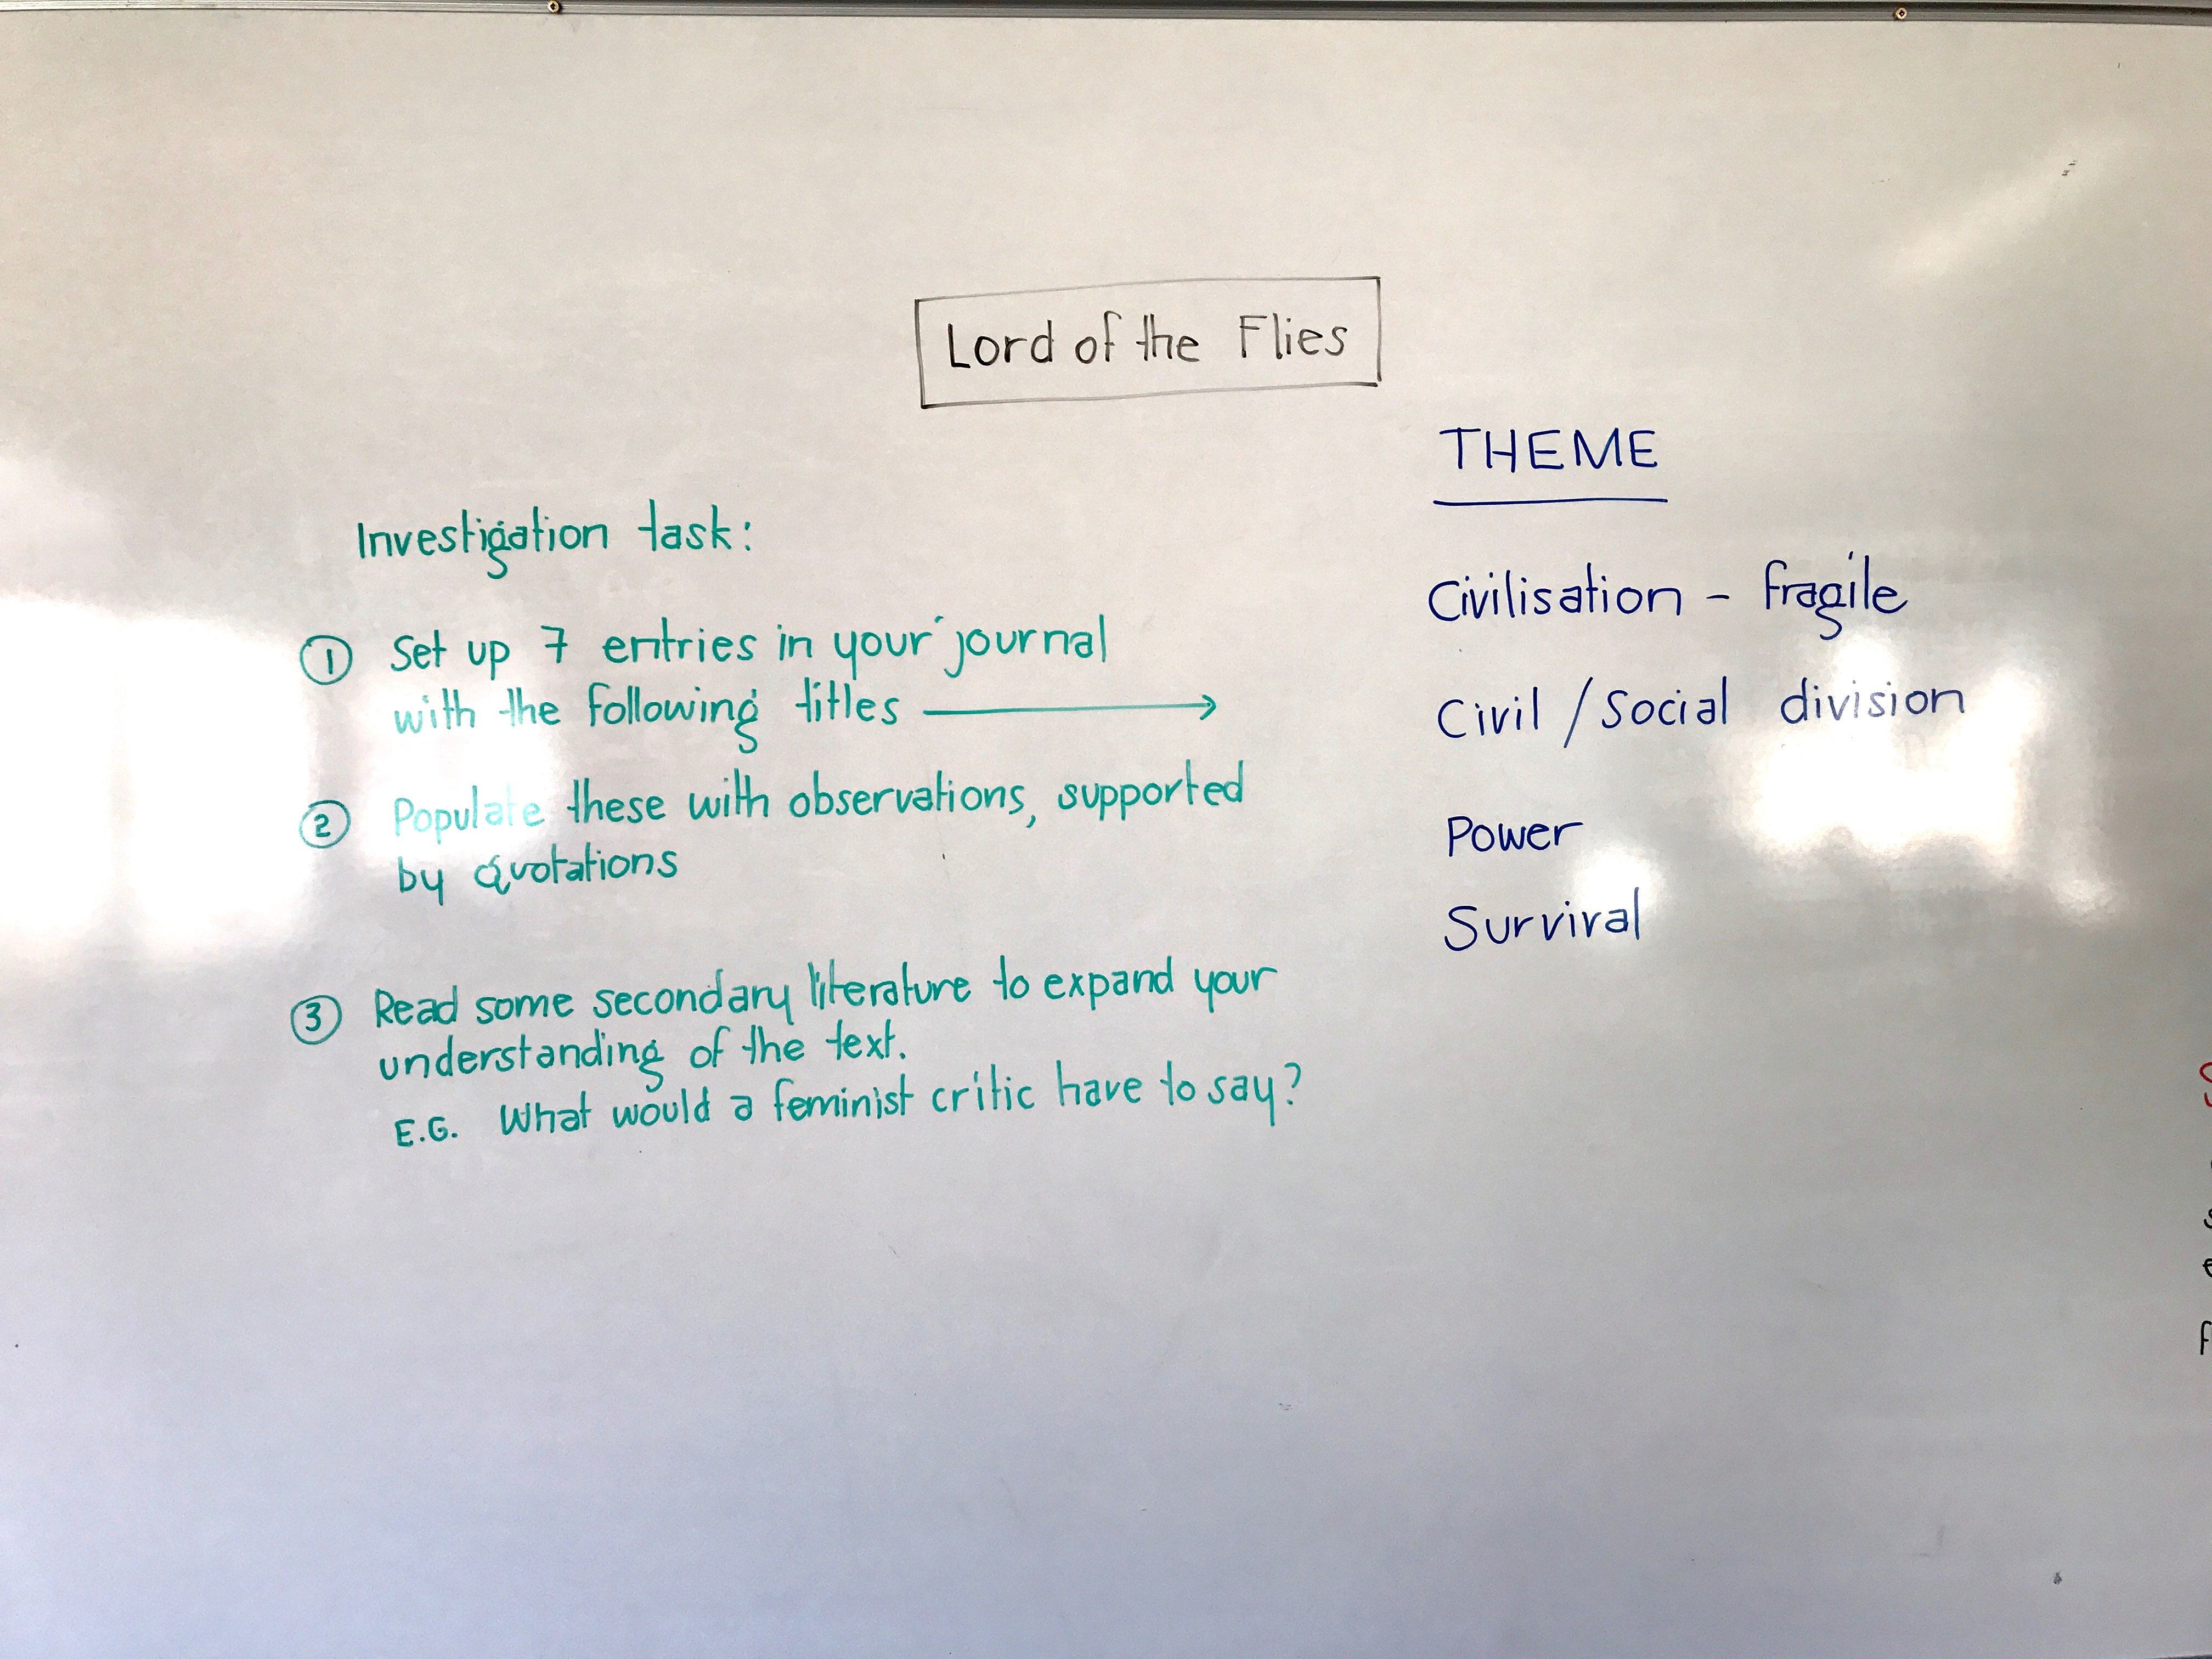 Lord of the Flies
Investigation task:
1 Set up 7 entries in your journal
with the following titles
2 Populate these with observations, supported
by quotations
3 Read some secondary literature to expand your
understanding of the text.
E.G. What would a feminist critic have to say?
THEME
Civilisation - fragile
Civil / Social division
Power
Survival